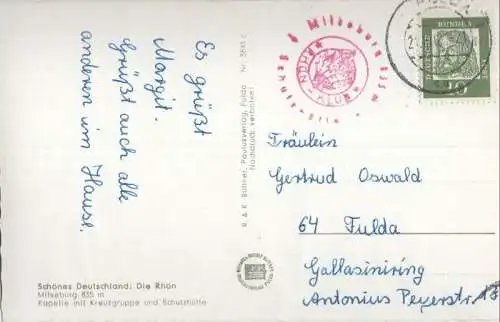 Es grüßt
Margit.
Grüßt auch alle
anderen im Hause.
Schönes Deutschland: Die Rhön
Milseburg 835 m
Kapelle mit Kreuzgruppe und Schutzhütte
B. & R. Büttner, Paulusverlag, Fulda
Nachdruck verboten!
Milseburg 835 m
RHÖN
KLUB
Fräulein
Gertrud Oswald
64 Fulda
Gallasiniring
Antonius Peyerstr. 13